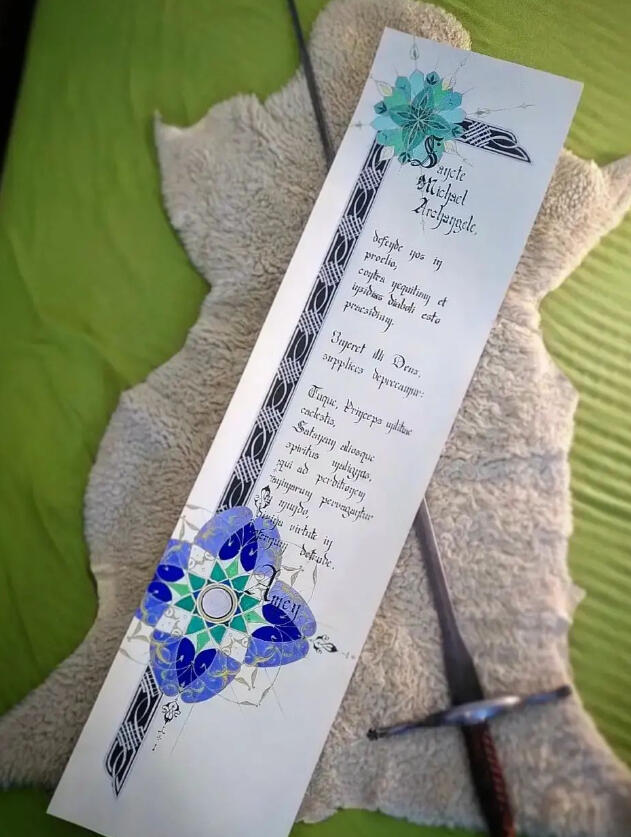 Sancte
Michael
Archangele,
defende nos in
proelio,
contra nequitiam et
insidias diaboli esto
praesidium.
Imperet illi Deus,
supplices deprecamur:
Tuque, Princeps militiae
caelestis,
Satanam aliosque
spiritus malignos,
qui ad perditionem
animarum pervagantur
mundo,
divina virtute in
detrude.
Amen.